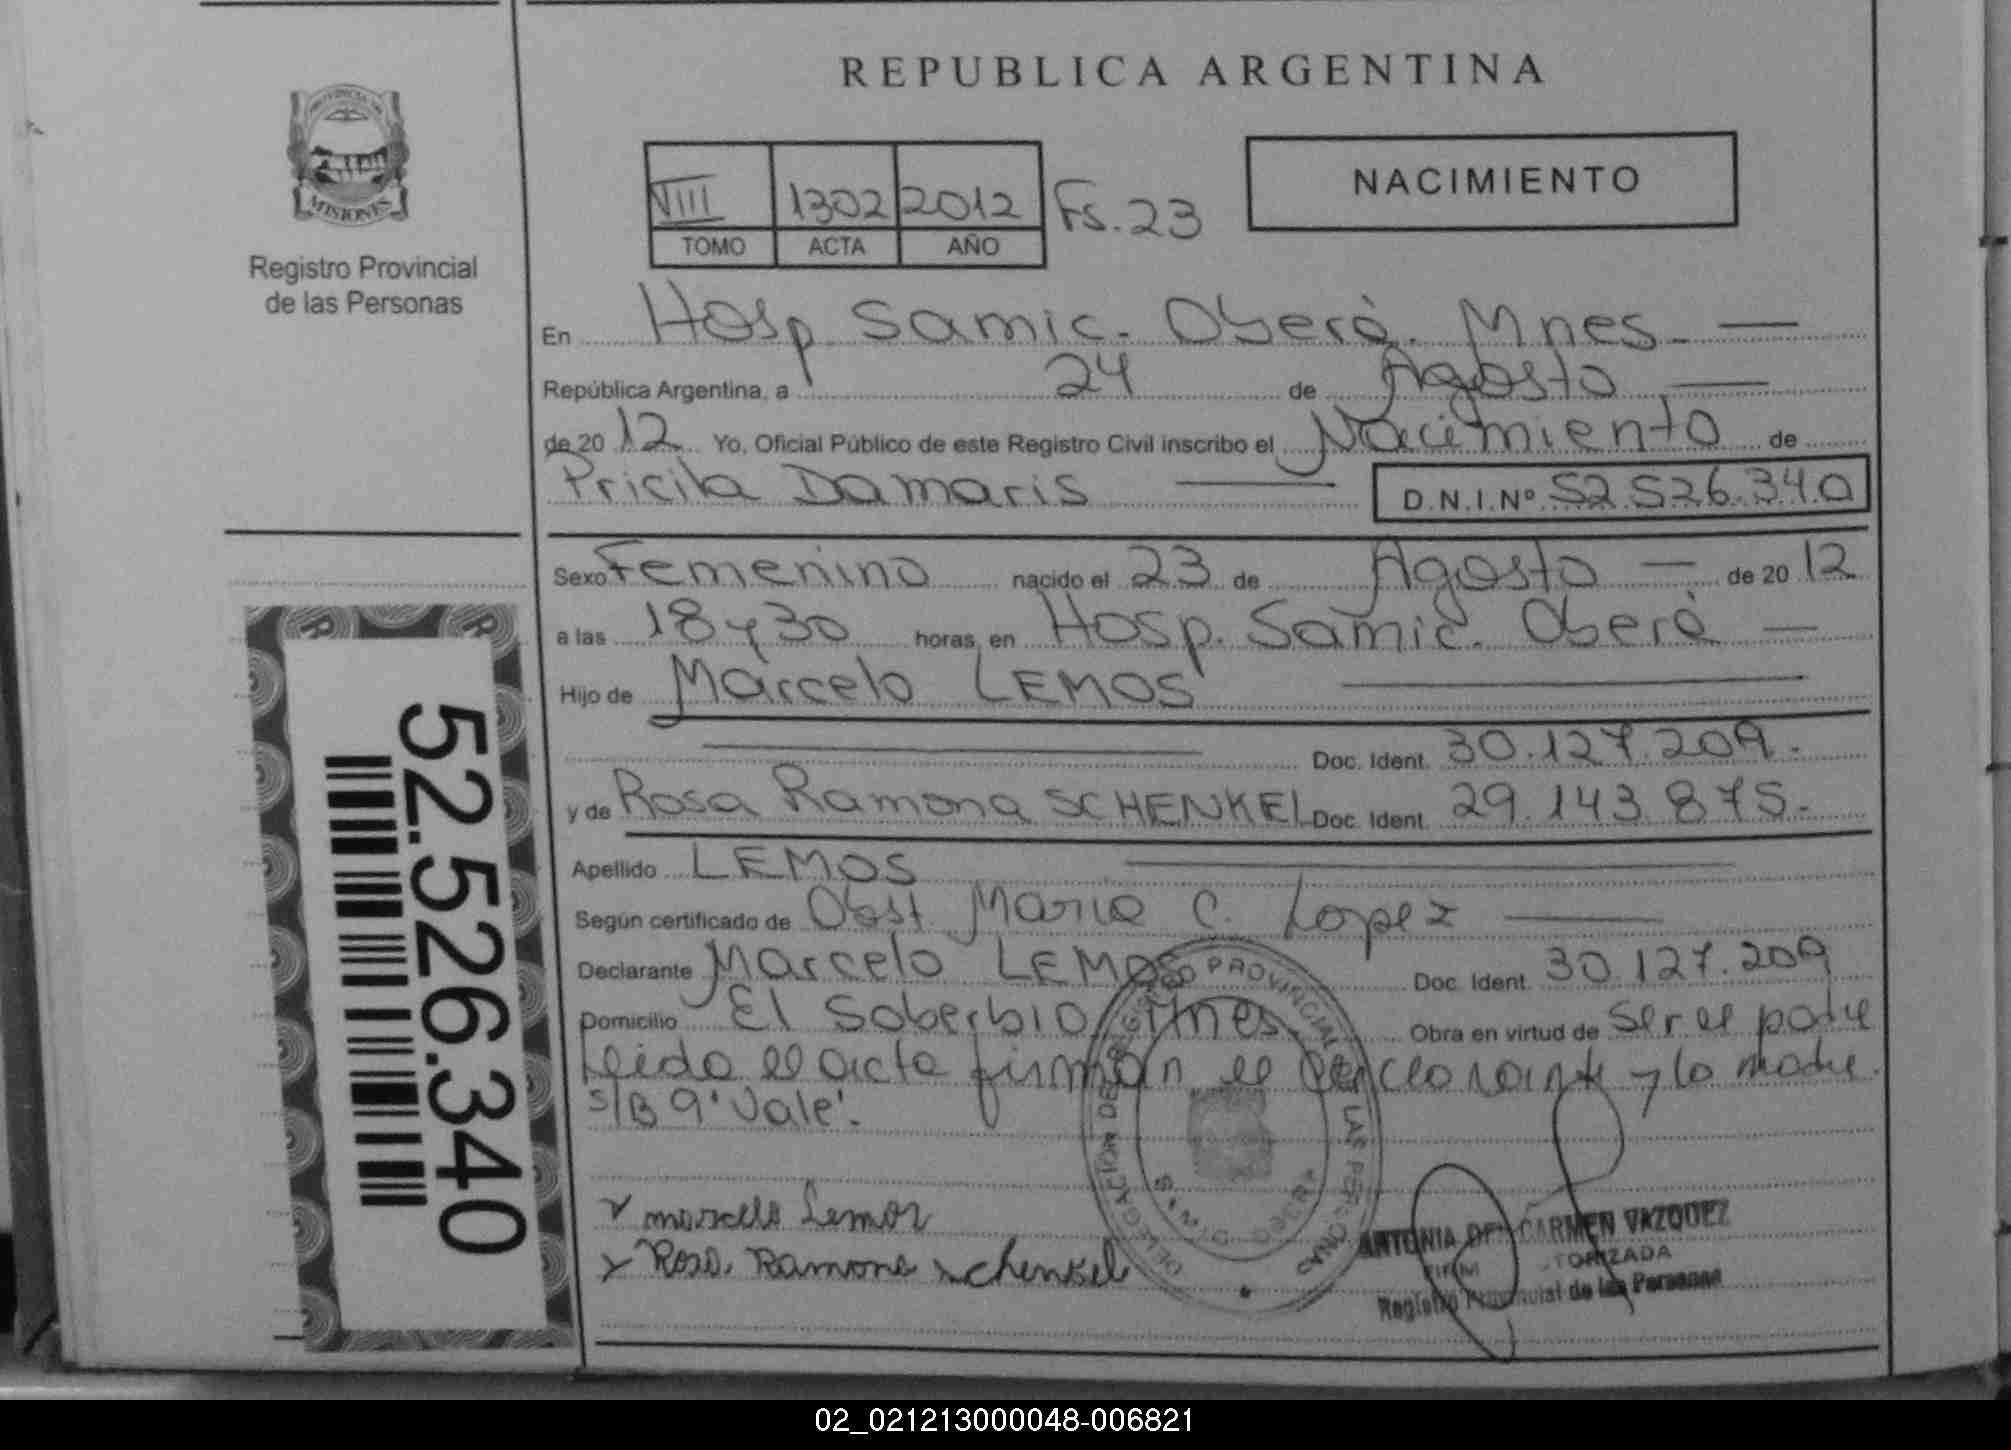 REPUBLICA ARGENTINA
PROVINCIA DE
MISIONES
Registro Provincial
de las Personas
VIII 1302 2012 Fs. 23
TOMO ACTA AÑO
NACIMIENTO
En Hosp. Samic. Oberá. Mnes.
República Argentina, a 24 de Agosto
de 20 12 Yo, Oficial Público de este Registro Civil inscribo el Nacimiento de
Pricila Damaris D.N.I.Nº 52.526.340
Sexo Femenino nacido el 23 de Agosto de 20 12
a las 18 y 30 horas, en Hosp. Samic. Oberá
Hijo de Marcelo LEMOS
Doc. Ident. 30.127.209.-
y de Rosa Ramona SCHENKEL Doc. Ident. 29.143.875.-
Apellido LEMOS
Según certificado de Obst. Maria C. Lopez
Declarante Marcelo LEMOS Doc. Ident. 30.127.209
Domicilio El Soberbio, Mnes. Obra en virtud de ser el padre
Leida el acta firman el declarante y la madre.
S/B 9 "Vale".
marcelo Lemos
Rosa Ramona schenkel
DELEGACION DEL REGISTRO PROVINCIAL DE LAS PERSONAS
ANTONIA DEL CARMEN VAZQUEZ
Registro Provincial de las Personas
52.526.340
02_021213000048-006821